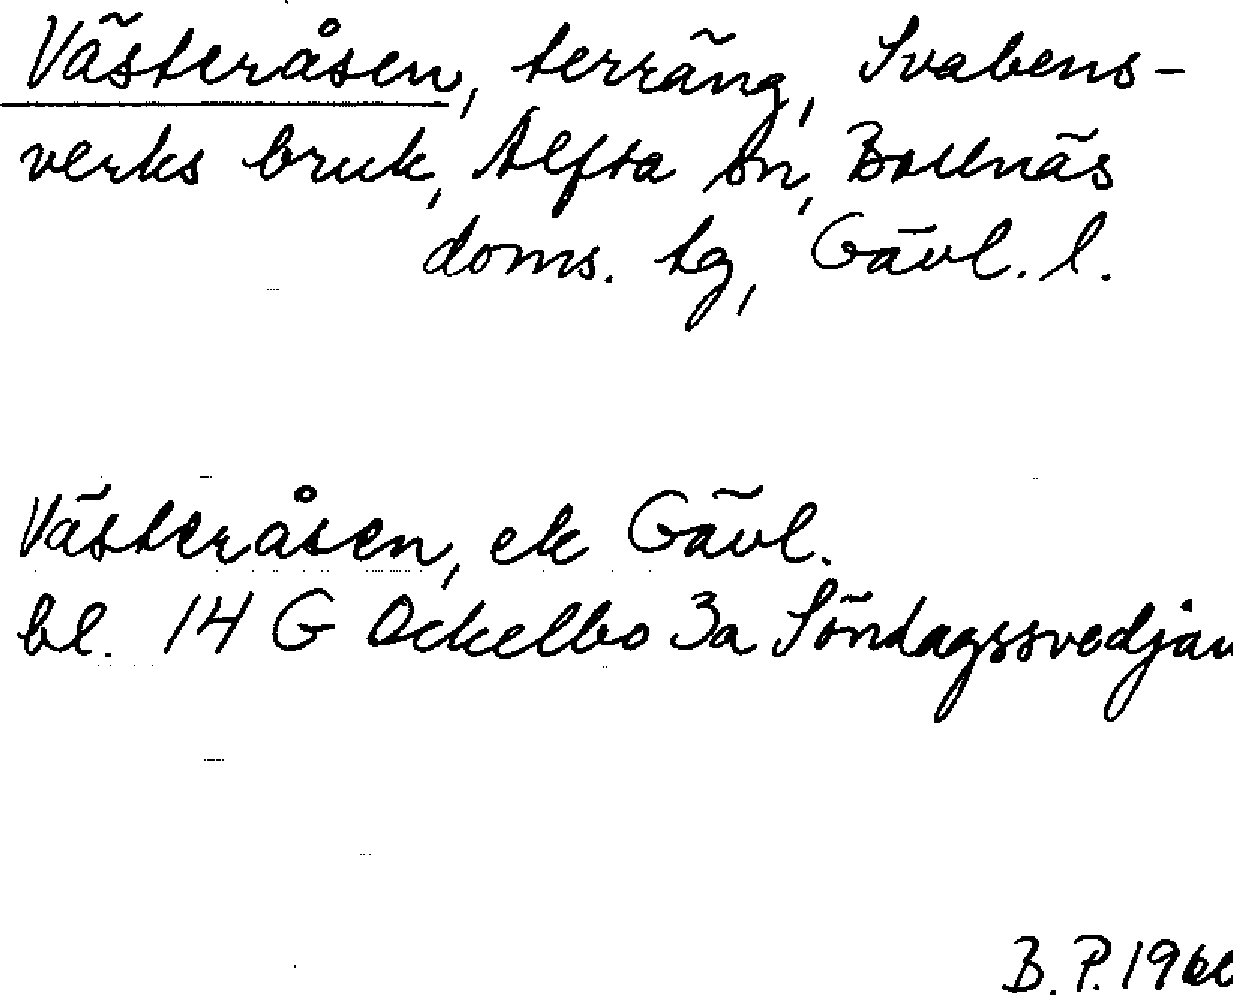 Västeråsen, terräng, Svabens-
verks bruk, Alfta sn, Bollnäs
doms. tg, Gävl. l.
Västeråsen, ek Gävl.
bl. 14 G Ockelbo 3a Söndagssvedjan
B. P. 1966